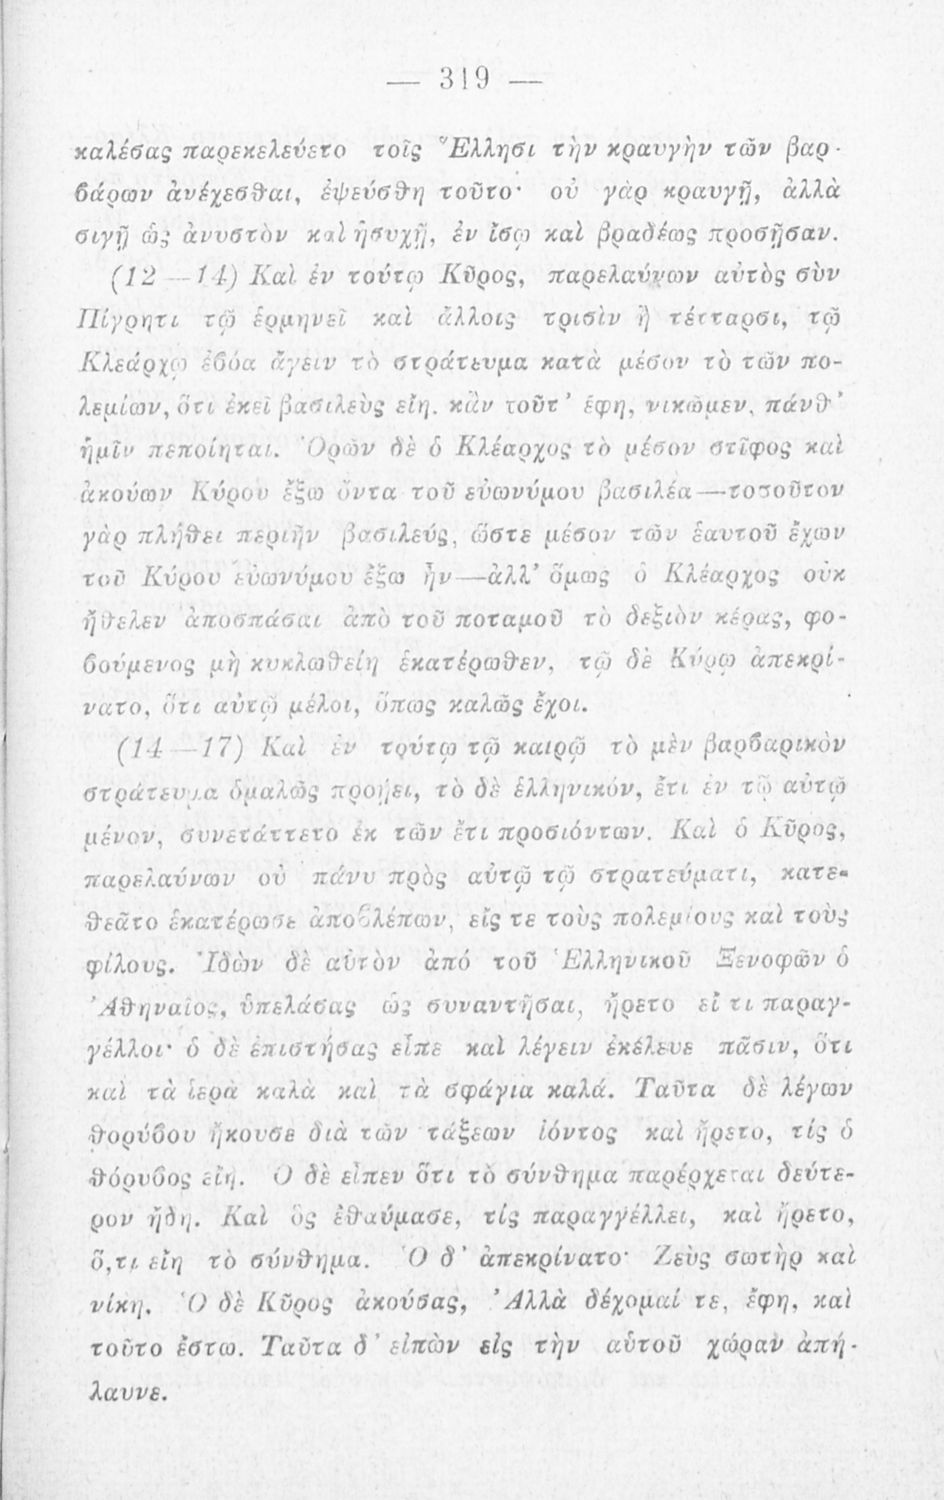 — 319 —
καλέσας παρεκελεύετο τοῖς Ἕλλησι τὴν κραυγὴν τῶν βαρ-
βάρων ἀνέχεσθαι, ἐψεύσθη τοῦτο· οὐ γὰρ κραυγῇ, ἀλλὰ
σιγῇ ὡς ἀνυστὸν καὶ ἡσυχῇ, ἐν ἴσῳ καὶ βραδέως προσῇσαν.
(12—14) Καὶ ἐν τούτῳ Κῦρος, παρελαύνων αὐτὸς σὺν
Πίγρητι τῷ ἑρμηνεῖ καὶ ἄλλοις τρισὶν ἢ τέτταρσι, τῷ
Κλεάρχῳ ἐβόα ἄγειν τὸ στράτευμα κατὰ μέσον τὸ τῶν πο-
λεμίων, ὅτι ἐκεῖ βασιλεὺς εἴη. κἂν τοῦτ' ἔφη, νικῶμεν, πάνθ'
ἡμῖν πεποίηται. Ὁρῶν δὲ ὁ Κλέαρχος τὸ μέσον στῖφος καὶ
ἀκούων Κύρου ἔξω ὄντα τοῦ εὐωνύμου βασιλέα—τοσοῦτον
γὰρ πλήθει περιῆν βασιλεύς, ὥστε μέσον τῶν ἑαυτοῦ ἔχων
τοῦ Κύρου εὐωνύμου ἔξω ἦν—ἀλλ' ὅμως ὁ Κλέαρχος οὐκ
ἤθελεν ἀποσπάσαι ἀπὸ τοῦ ποταμοῦ τὸ δεξιὸν κέρας, φο-
βούμενος μὴ κυκλωθείη ἑκατέρωθεν, τῷ δὲ Κύρῳ ἀπεκρί-
νατο, ὅτι αὐτῷ μέλοι, ὅπως καλῶς ἔχοι.
(14—17) Καὶ ἐν τούτῳ τῷ καιρῷ τὸ μὲν βαρβαρικὸν
στράτευμα ὁμαλῶς προῄει, τὸ δὲ ἑλληνικόν, ἔτι ἐν τῷ αὐτῷ
μένον, συνετάττετο ἐκ τῶν ἔτι προσιόντων. Καὶ ὁ Κῦρος,
παρελαύνων οὐ πάνυ πρὸς αὐτῷ τῷ στρατεύματι, κατε-
θεᾶτο ἑκατέρωσε ἀποβλέπων, εἴς τε τοὺς πολεμίους καὶ τοὺς
φίλους. Ἰδὼν δὲ αὐτὸν ἀπό τοῦ Ἑλληνικοῦ Ξενοφῶν ὁ
Ἀθηναῖος, ὑπελάσας ὡς συναντῆσαι, ἤρετο εἴ τι παραγ-
γέλλοι· ὁ δὲ ἐπιστήσας εἶπε καὶ λέγειν ἐκέλευε πᾶσιν, ὅτι
καὶ τὰ ἱερὰ καλὰ καὶ τὰ σφάγια καλά. Ταῦτα δὲ λέγων
θορύβου ἤκουσε διὰ τῶν τάξεων ἰόντος καὶ ἤρετο, τίς ὁ
θόρυβος εἴη. Ὁ δὲ εἶπεν ὅτι τὸ σύνθημα παρέρχεται δεύτε-
ρον ἤδη. Καὶ ὃς ἐθαύμασε, τίς παραγγέλλει, καὶ ἤρετο,
ὅ,τι εἴη τὸ σύνθημα. Ὁ δ' ἀπεκρίνατο· Ζεὺς σωτὴρ καὶ
νίκη. Ὁ δὲ Κῦρος ἀκούσας, Ἀλλὰ δέχομαί τε, ἔφη, καὶ
τοῦτο ἔστω. Ταῦτα δ' εἰπὼν εἰς τὴν αὑτοῦ χώραν ἀπή-
λαυνε.